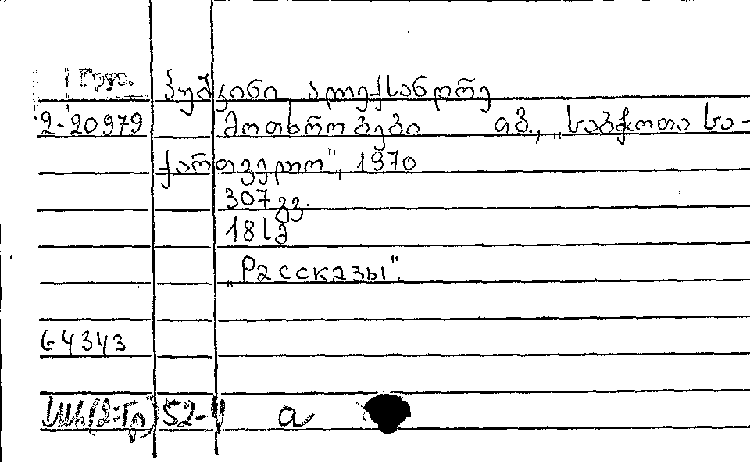 პუშკინი ალექსანდრე
2-20979 მოთხრობები თბ., „საბჭოთა სა-
ქართველო", 1970
307 გვ.
18სმ
„Рассказы".
64343
52- a